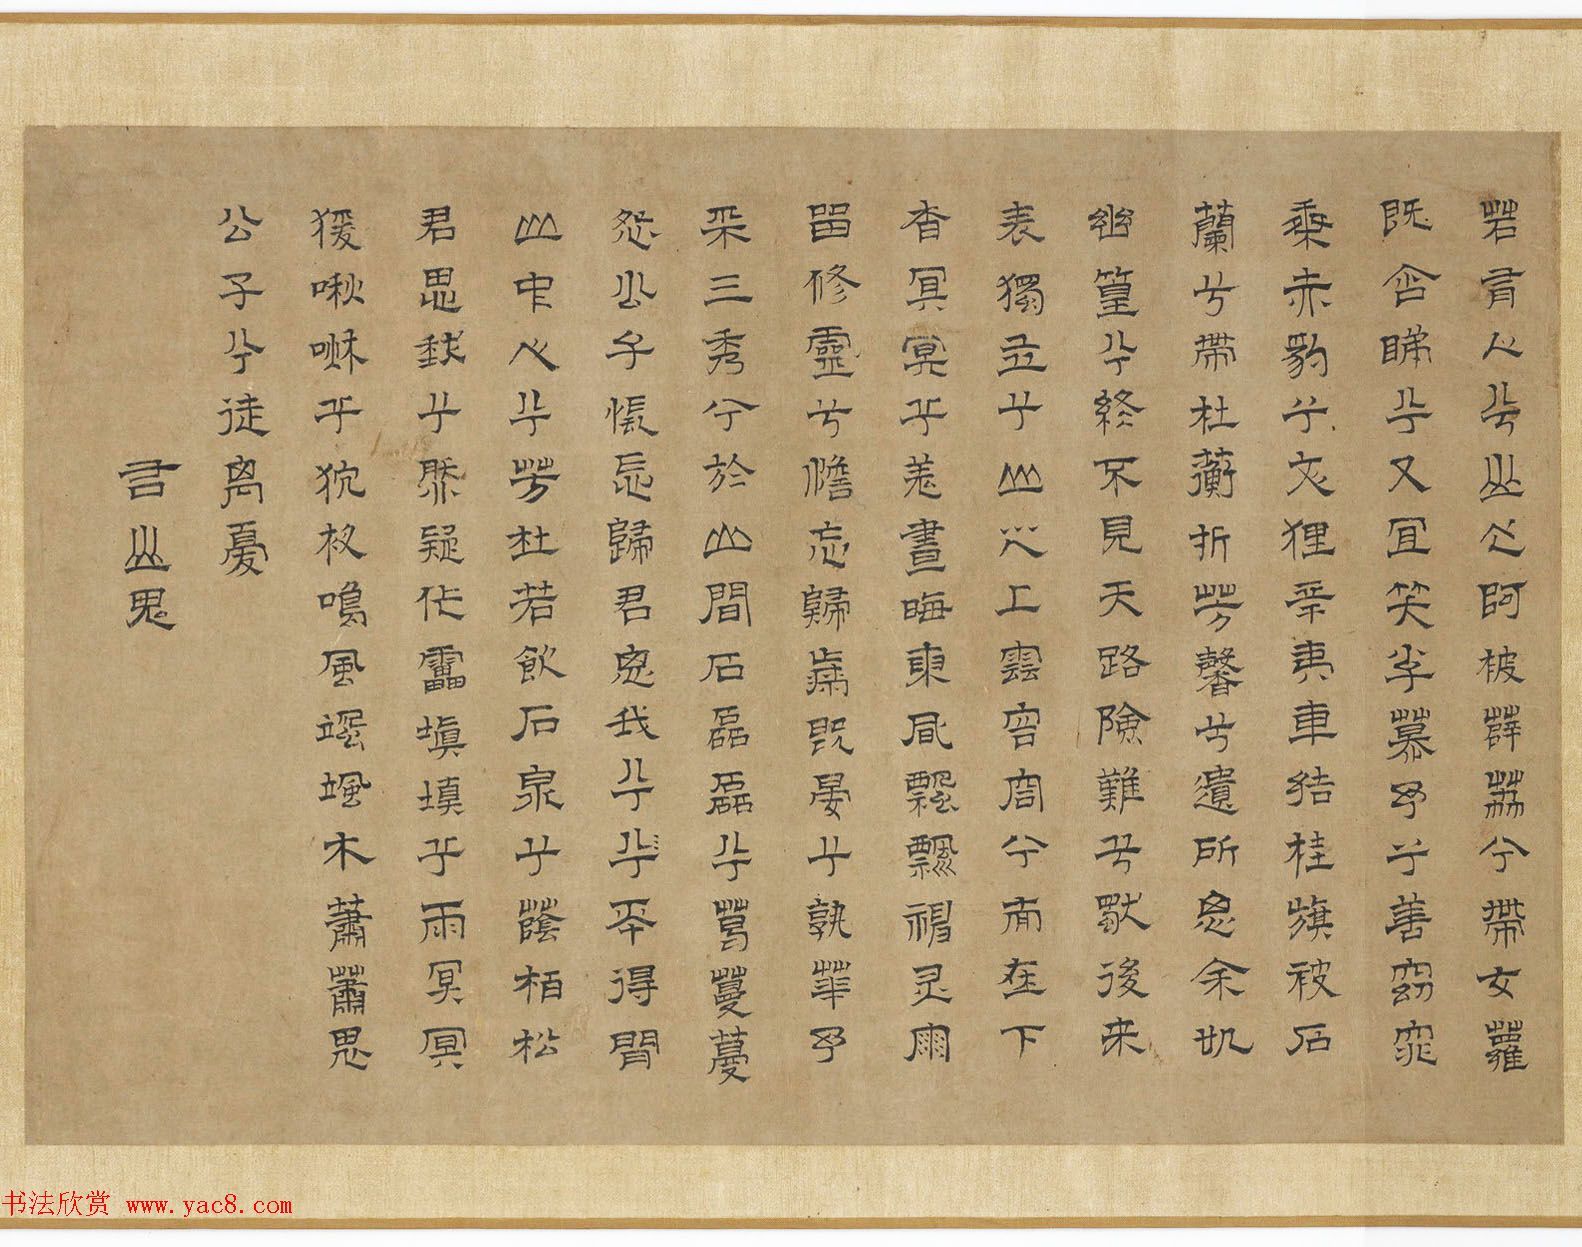 若有人兮山之阿被薜荔兮帶女蘿
既含睇兮又宜笑子慕予兮善窈窕
乘赤豹兮文狸辛夷車結桂旗被石
蘭兮帶杜蘅折芳馨兮遺所思余処
幽篁兮終不見天路險難兮獨後来
表獨立兮山之上雲容容兮而在下
杳冥冥兮羌晝晦東風飄飄神灵雨
留修靈兮憺忘歸歲既晏兮孰華予
采三秀兮於山間石磊磊兮葛蔓蔓
怨公子悵忘歸君思我兮兮不得閒
山中人兮芳杜若飲石泉兮蔭栢松
君思我兮然疑作靁填填兮雨冥冥
猨啾啾兮狖夜鳴風颯颯木蕭蕭思
公子兮徒離憂
右山鬼
书法欣赏 www.yac8.com